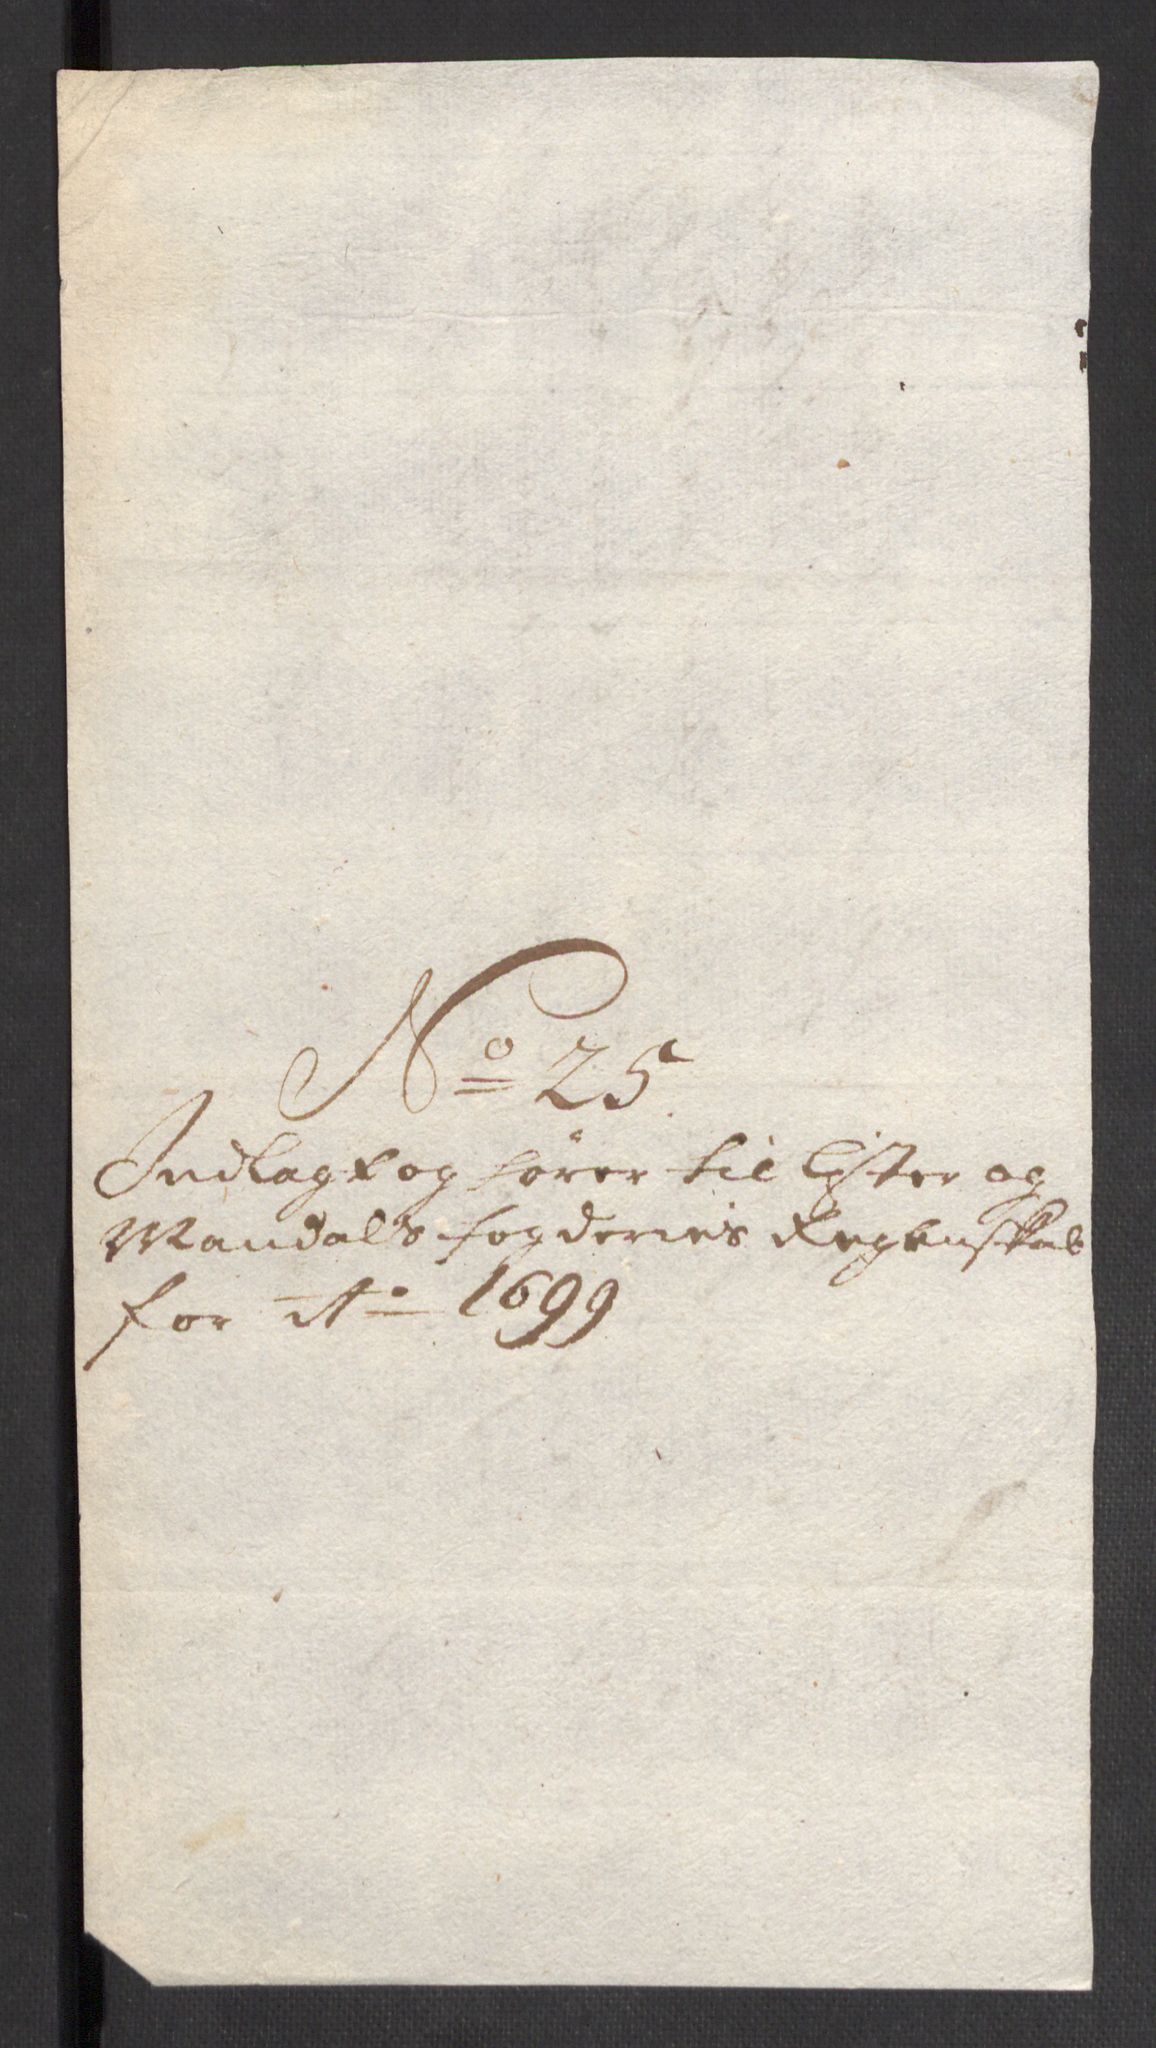 No 25
Indlagt og hörer til Lister og
Mandals fogderies Regenskab
for Ao 1699